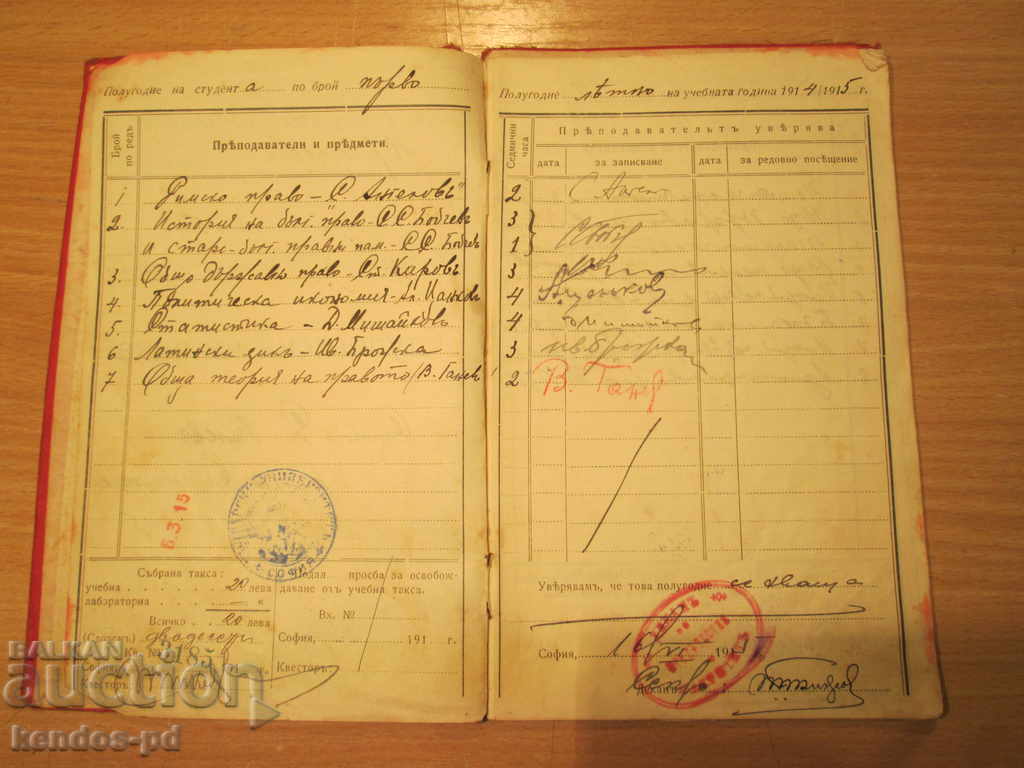 Полугодие на студента по брой първо
Брой по редъ
Прѣподаватели и прѣдмети.
1 Римско право - С. Ангеловъ
2. История на бълг. право - С С Бобчевъ
и старо-бълг. правни пам. - С С Бобчевъ
3. Общо държавно право - Ст. Кировъ
4. Политическа икономия - Ал. Цанковъ
5. Статистика - Д. Мишайковъ
6 Латински език - Ив. Брожка
7 Обща теория на правото (В. Ганевъ
6.3.15
СОФИЯ
Събрана такса:
учебна 20 лева
лабораторна — „
Всичко 20 лева
(Словомъ) двадесеть
Кв. №
София
Квесторъ
Подал просба за освобождаване отъ учебна такса.
Вх. №
София, 191 г.
Квесторъ
Полугодие лѣтно на учебната година 1914/1915 г.
Седмични часа
Прѣподавательтъ увѣрява
дата за записване дата за редовно посѣщение
2
3
1
3
4
4 Д Мишайков
3 Ив. Брожка
2 В. Ганев
Увѣрявамъ, че това полугодие се зачита
София, 191 г.
Деканъ:
BALKAN
auction
kendos-pd